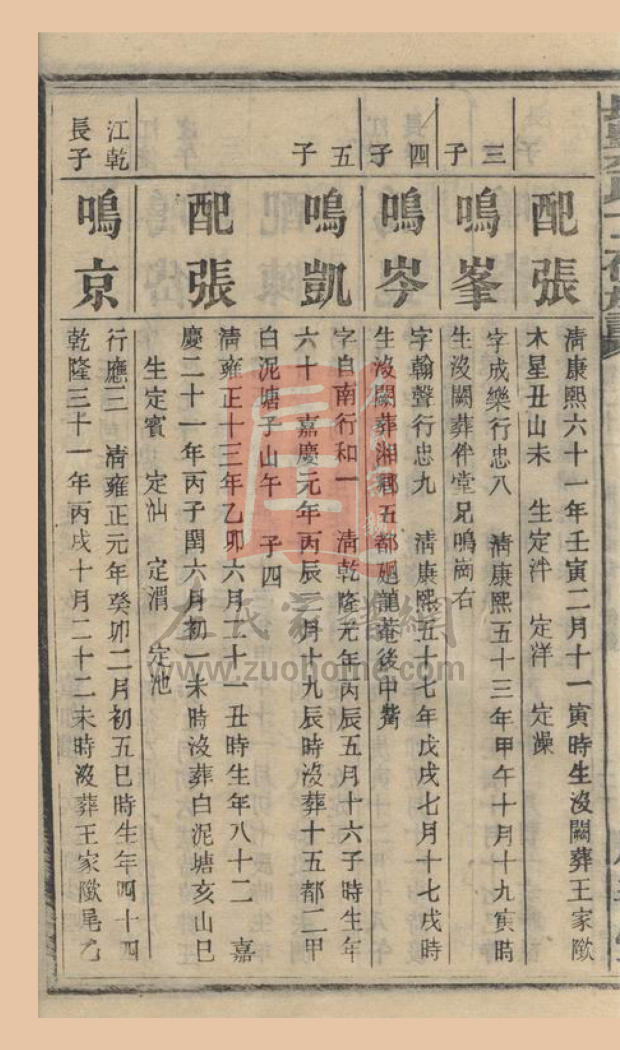 配張
清康熙六十一年壬寅二月十一寅時生沒闕葬王家
木星丑山未 生定泮 定洋 定澡
三子
鳴峯
字成樂行忠八 清康熙五十三年甲午十月十九寅時
生沒闕葬伴堂兄鳴崗右
四子
鳴岑
字翰聲行忠九 清康熙五十七年戊戌七月十七戌時
生沒闕葬湘鄉五都廻龍菴後中
五子
鳴凱
字自南行和一 清乾隆元年丙辰五月十六子時生年
六十一 嘉慶元年丙辰二月十九辰時沒葬十五都二甲
白泥塘子山午 子四
配張
清雍正十三年乙卯六月二十一丑時生年八十二 嘉
慶二十一年丙子閏六月初一未時沒葬白泥塘亥山巳
生定賓 定汕 定渭 定池
江乾長子
鳴京
行應三 清雍正元年癸卯二月初五巳時生年四十四
乾隆三十一年丙戌十月二十二未時沒葬王家尾乙
左氏家譜網
www.zuohome.com